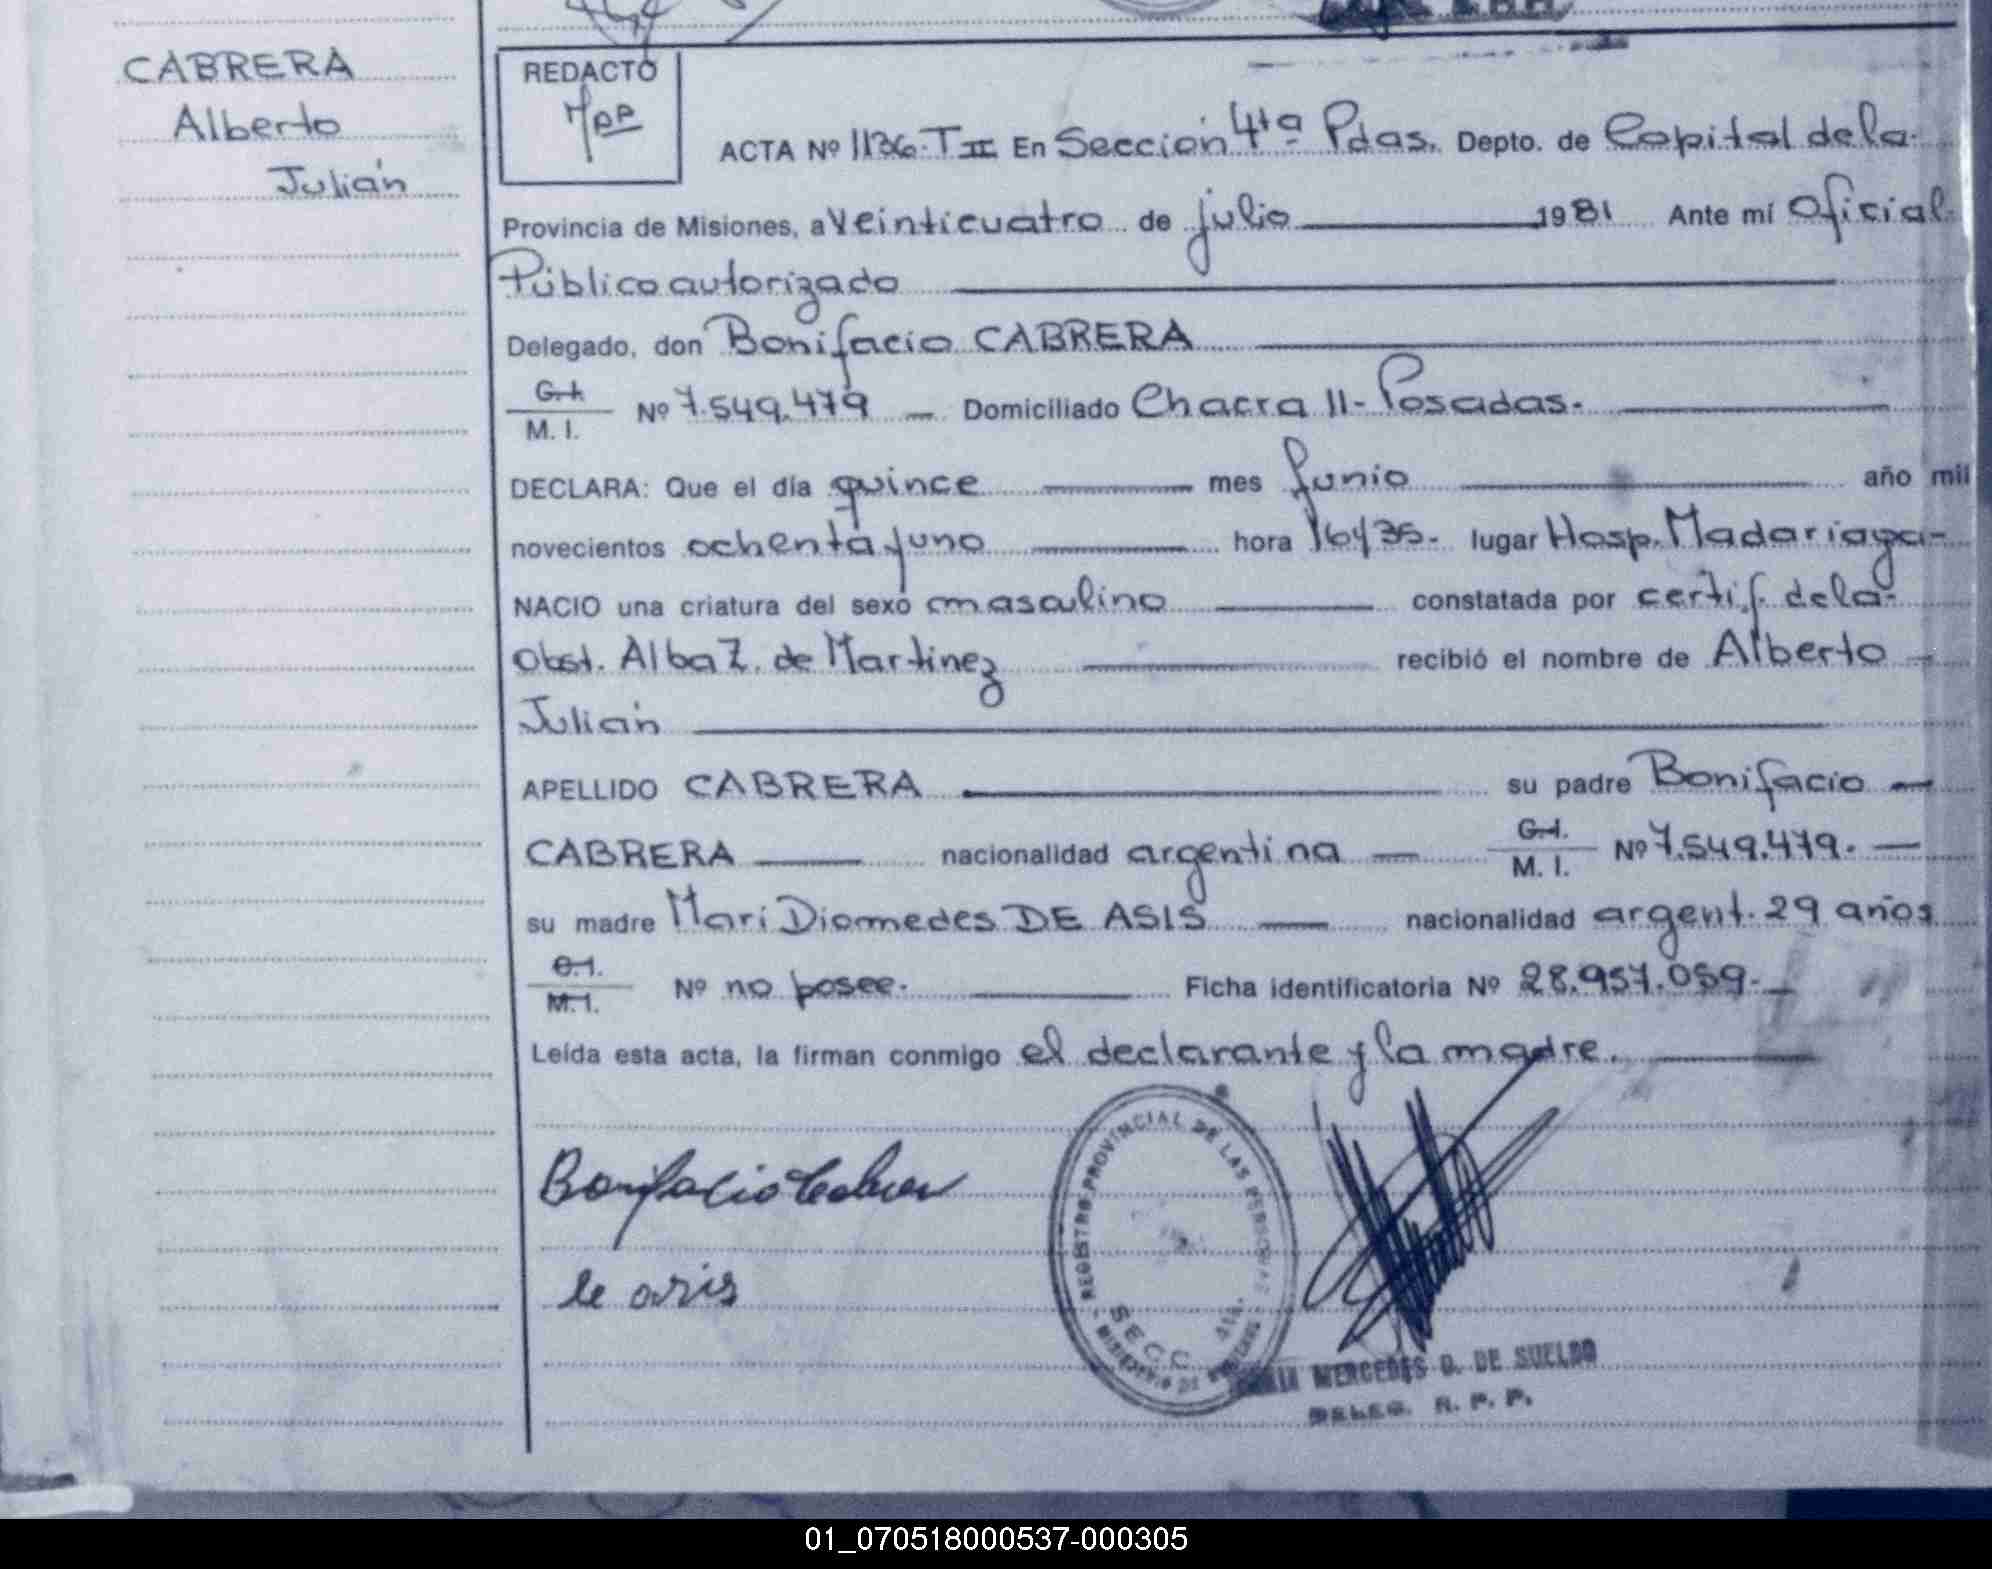 CABRERA
Alberto
Julián
REDACTO
ACTA Nº 1136-TII En Sección 4ta Pdas. Depto. de Capital de la
Provincia de Misiones, a veinticuatro de julio 1981 Ante mí Oficial
Público autorizado
Delegado, don Bonifacio CABRERA
C.I. M. I. Nº 7.549.479 Domiciliado Chacra 11-Posadas.
DECLARA: Que el día quince mes junio año mil
novecientos ochenta y uno hora 16y35. lugar Hosp. Madariaga-
NACIO una criatura del sexo masculino constatada por certif. de la
Obst. Alba Z. de Martinez recibió el nombre de Alberto
Julián
APELLIDO CABRERA su padre Bonifacio
CABRERA nacionalidad argentina C.I. M. I. Nº 7.549.479.
su madre Mari Diomedes DE ASIS nacionalidad argent. 29 años
C.I. M.I. Nº no posee. Ficha identificatoria Nº 28.957.059.
Leída esta acta, la firman conmigo el declarante y la madre.
Bonifacio Cabrera
REGISTRO PROVINCIAL DE LAS PERSONAS
SECC. 4ta.
MERCEDES D. DE SUELDO
DELEG. R. P. P.
01_070518000537-000305